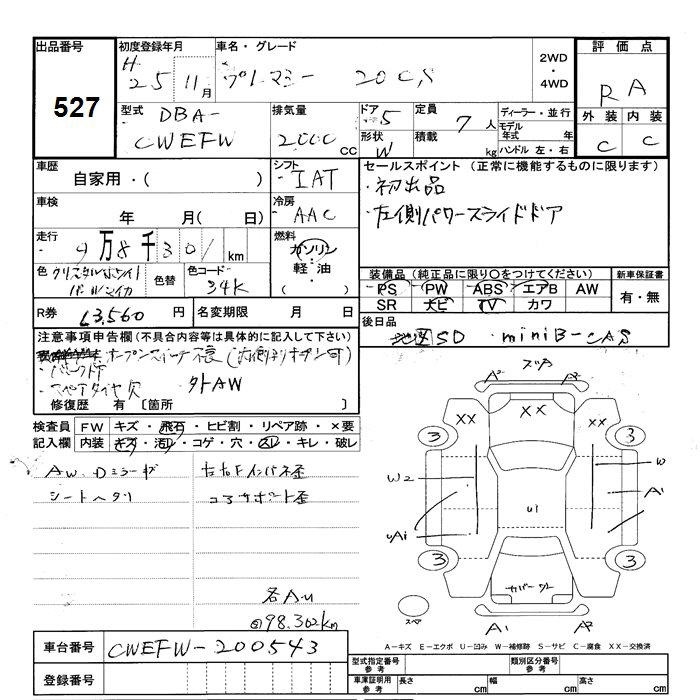 出品番号
527
初度登録年月
H 25 11月
車名・グレード
プレマシー 20CS
2WD
・
4WD
評価点
RA
外装 内装
C C
型式
DBA-
CWEFW
排気量
2000 CC
ドア 5
形状 W
定員
7 人
積載
kg
ディーラー・並行
モデル年式 年
ハンドル 左・右
車歴
自家用・( )
シフト
IAT
車検
年 月( 日)
冷房
AAC
走行
9万8千301 km
燃料
ガソリン
・
軽油
・
( )
色 クリスタルホワイト
パールマイカ
色替
色コード
34K
R券
13,560 円
名変期限 月 日
セールスポイント (正常に機能するものに限ります)
・初出品
・左側パワースライドドア
装備品 (純正品に限り○をつけてください)
PS PW ABS エアB AW
SR ナビ TV カワ
新車保証書
有・無
後日品
地図SD ・miniB-CAS
注意事項申告欄 (不具合内容等は具体的に記入して下さい)
・スペアタイヤ欠 外AW
修復歴 有 [箇所 ]
検査員
記入欄
FW キズ・飛石・ヒビ割・リペア跡・×要
内装 キズ・汚レ・コゲ・穴・スレ・キレ・破レ
AW、Dミラーキズ
シートヘタリ
左右Fインパネ歪
コアサポート歪
各A・U
98,302km
A² A²
XX XX XX
3 3
W2 W
A¹
UA1 U1
3 3
カバーワレ
スペア
A1 A2
A-キズ E-エクボ U-凹み W-補修跡 S-サビ C-腐食 XX-交換済
車台番号
CWEFW-200543
登録番号
型式指定番号
参考
類別区分番号
参考
車庫証明用
参考
長さ cm
幅 cm
高さ cm